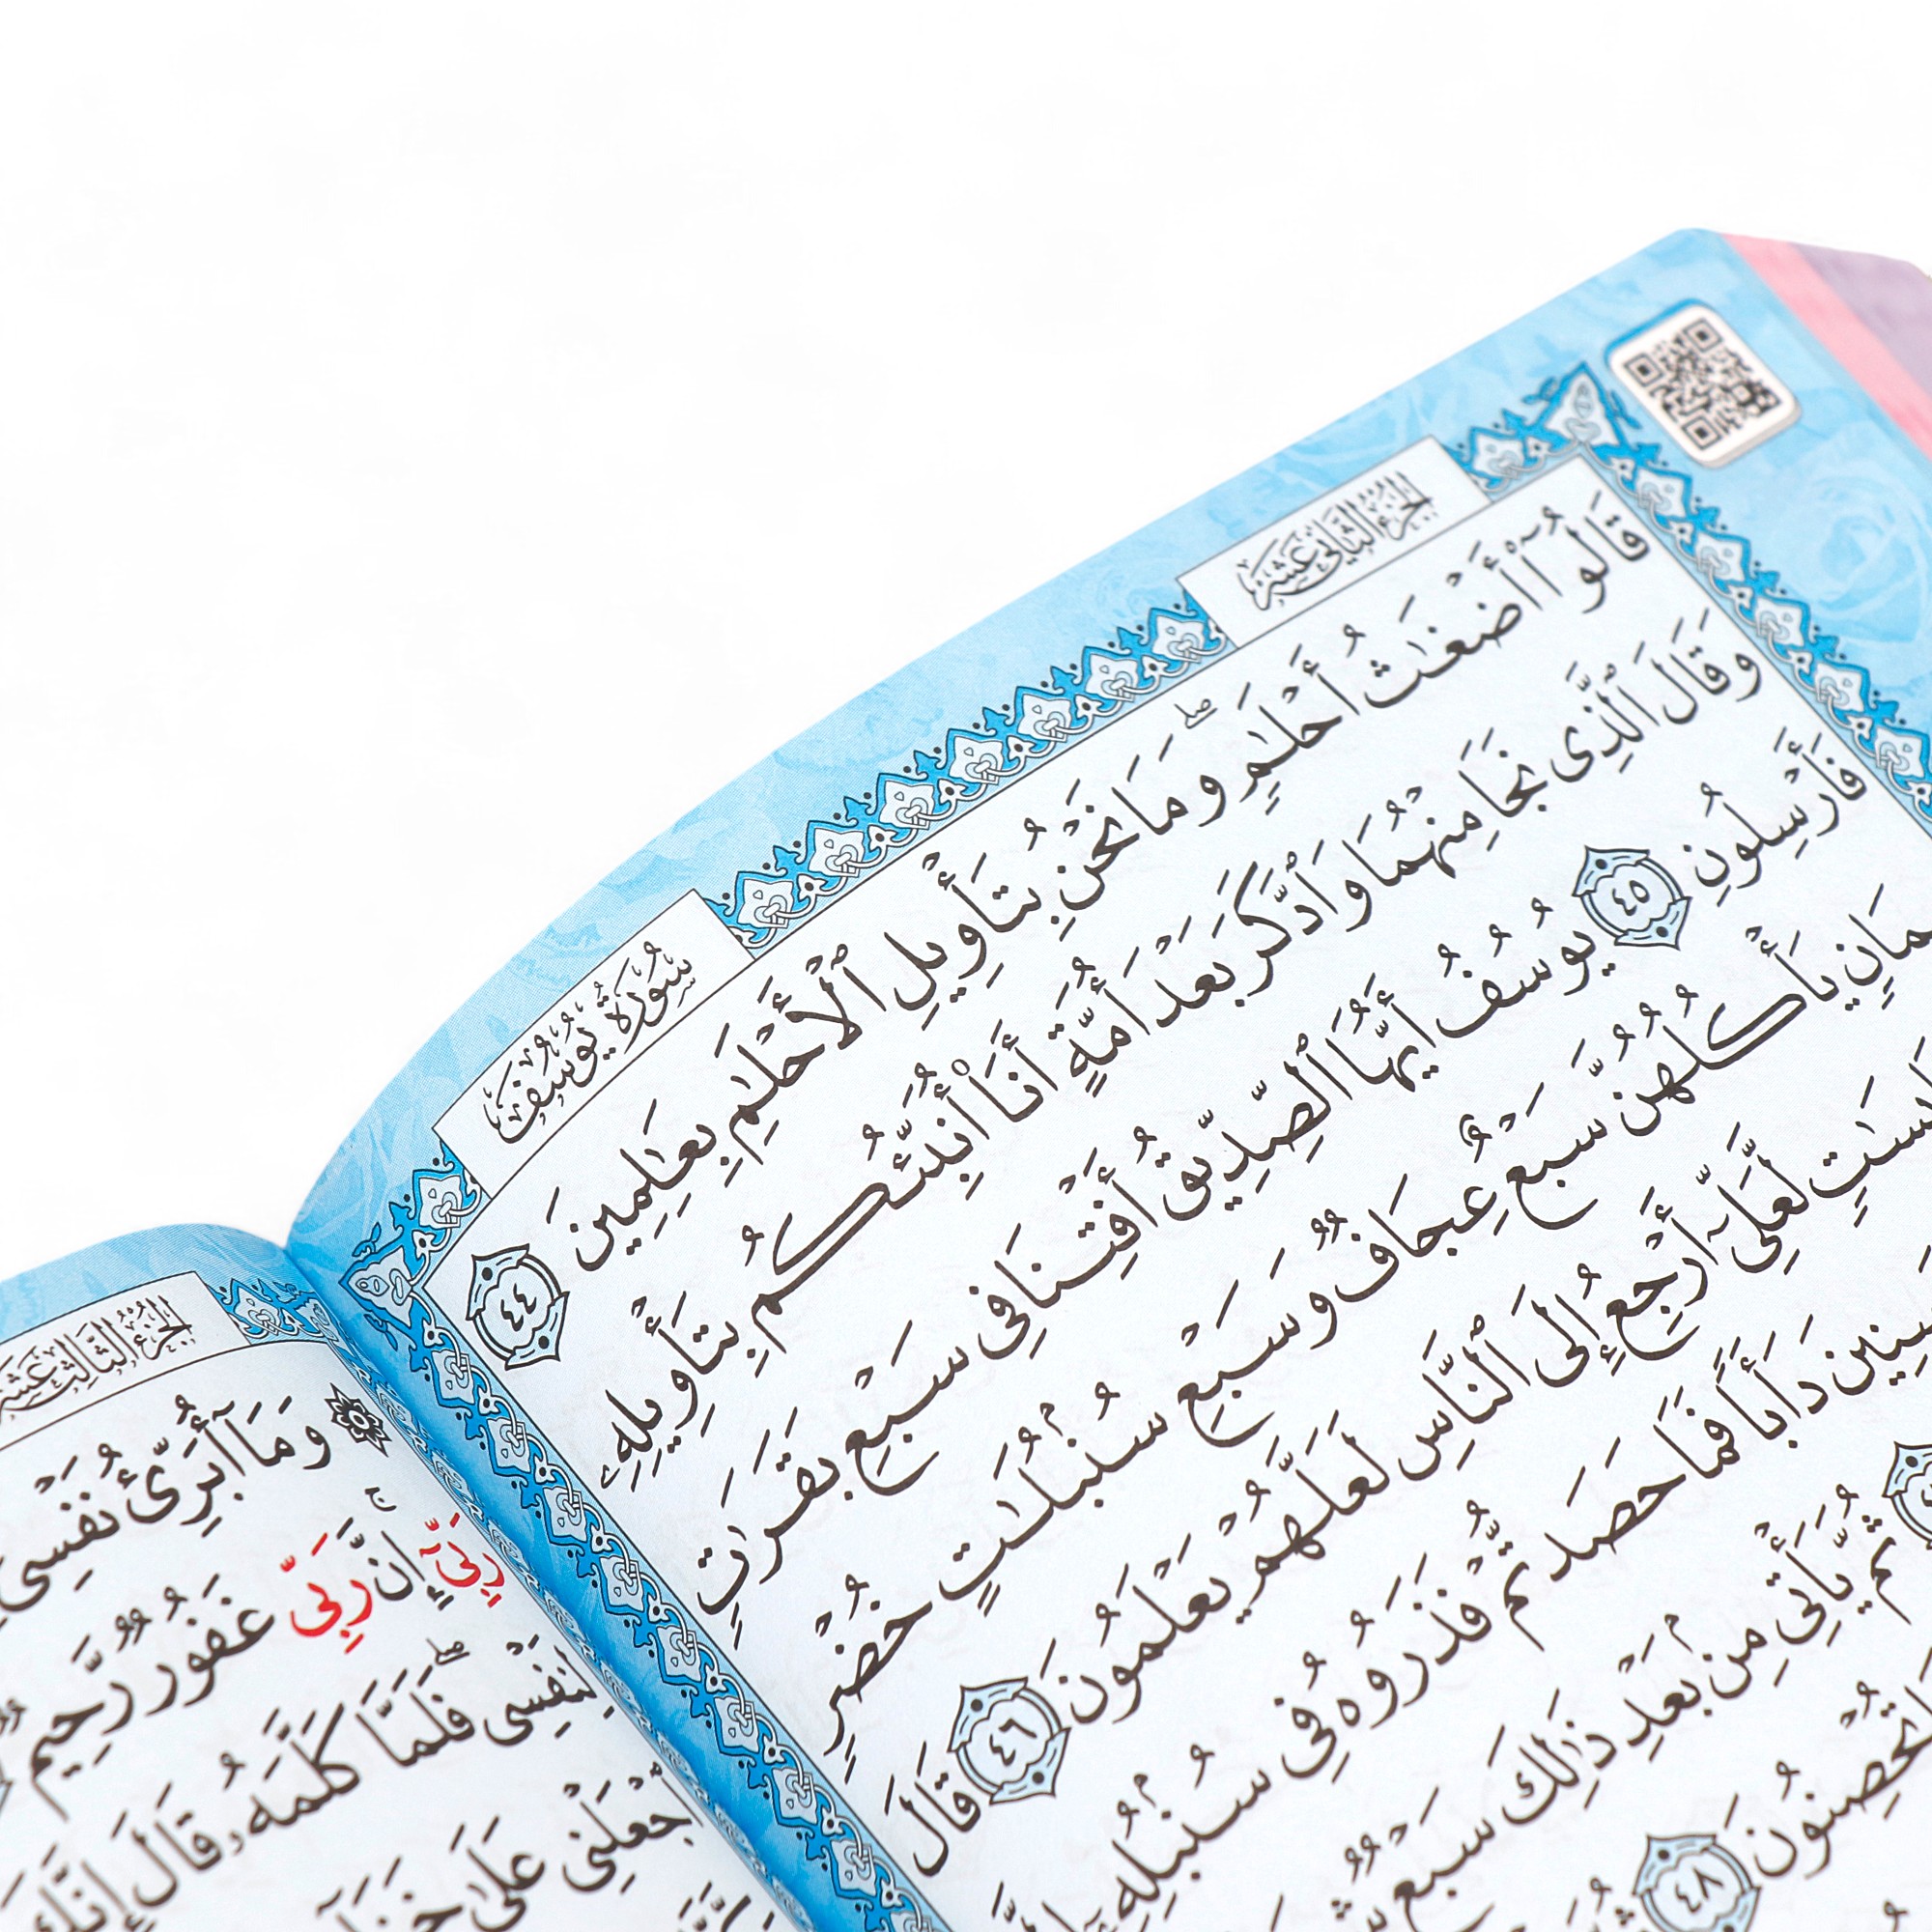 الجزء الثاني عشر
سورة يوسف
قَالُوٓا۟ أَضْغَـٰثُ أَحْلَـٰمٍ ۖ وَمَا نَحْنُ بِتَأْوِيلِ ٱلْأَحْلَـٰمِ بِعَـٰلِمِينَ ٤٤
وَقَالَ ٱلَّذِى نَجَا مِنْهُمَا وَٱدَّكَرَ بَعْدَ أُمَّةٍ أَنَا۠ أُنَبِّئُكُم بِتَأْوِيلِهِۦ
فَأَرْسِلُونِ ٤٥ يُوسُفُ أَيُّهَا ٱلصِّدِّيقُ أَفْتِنَا فِى سَبْعِ بَقَرَٰتٍ
يَأْكُلُهُنَّ سَبْعٌ عِجَافٌ وَسَبْعِ سُنۢبُلَـٰتٍ خُضْرٍ
لَّعَلِّىٓ أَرْجِعُ إِلَى ٱلنَّاسِ لَعَلَّهُمْ يَعْلَمُونَ ٤٦ قَالَ
دَأَبًا فَمَا حَصَدتُّمْ فَذَرُوهُ فِى سُنۢبُلِهِۦٓ
ثُمَّ يَأْتِى مِنۢ بَعْدِ ذَٰلِكَ سَبْعٌ
تُحْصِنُونَ ٤٨
الجزء الثالث عشر
وَمَآ أُبَرِّئُ نَفْسِىٓ
رَبِّىٓ ۚ إِنَّ رَبِّى غَفُورٌ رَّحِيمٌ
لِنَفْسِى ۖ فَلَمَّا كَلَّمَهُۥ قَالَ إِنَّكَ
ٱجْعَلْنِى عَلَىٰ